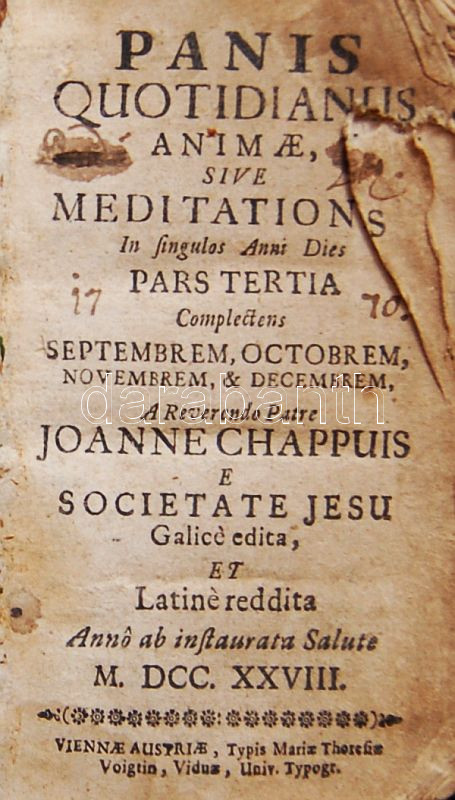 PANIS
QUOTIDIANUS
ANIMÆ,
SIVE
MEDITATIONS
In ſingulos Anni Dies
PARS TERTIA
17 70.
Complectens
SEPTEMBREM, OCTOBREM,
NOVEMBREM, & DECEMBREM,
darabanth
A Reverendo Patre
JOANNE CHAPPUIS
E
SOCIETATE JESU
Galicè edita,
ET
Latinè reddita
Annô ab inſtaurata Salute
M. DCC. XXVIII.
VIENNÆ AUSTRIÆ, Typis Mariæ Thereſiæ
Voigtin, Viduæ, Univ. Typogr.